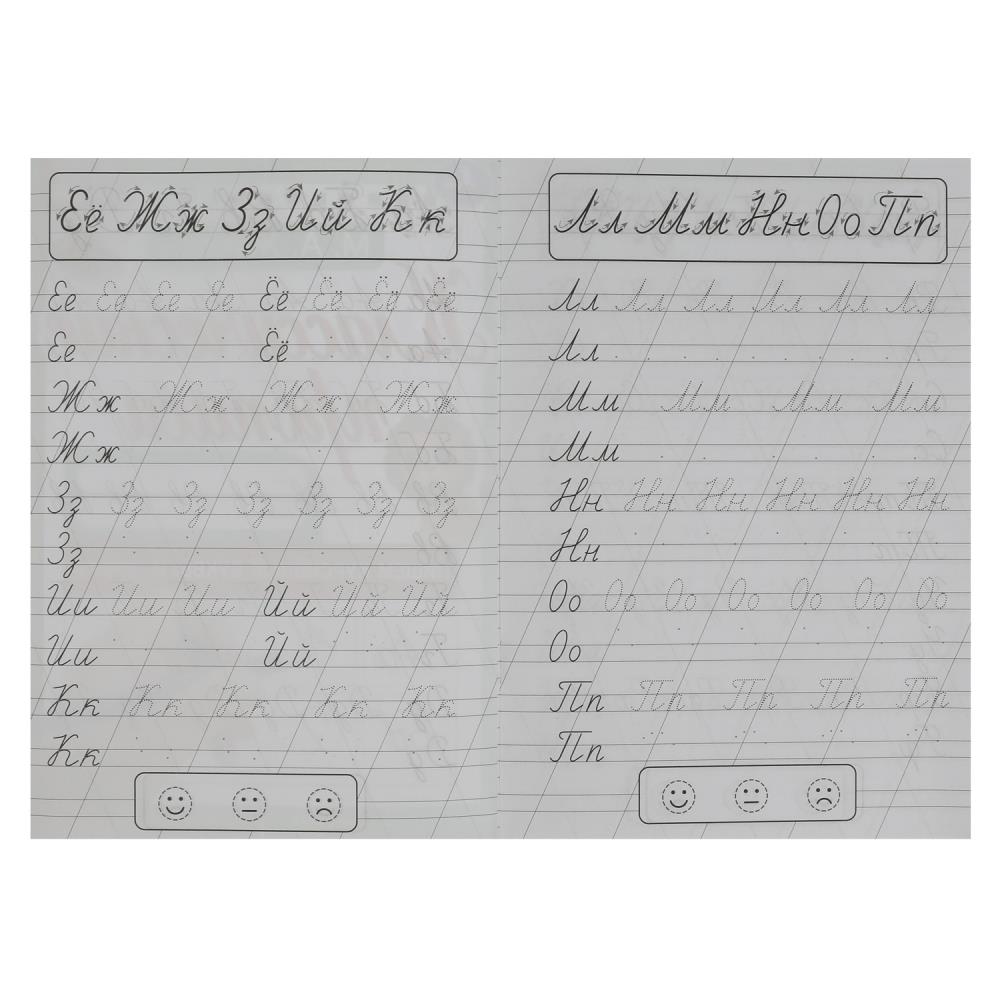 Её Жж Зз Ий Кк
Ее Ее Ее Ее Ёё Ёё Ёё Ёё
Ее Ёё
Жж Жж Жж Жж
Жж
Зз Зз Зз Зз Зз Зз Зз
Зз
Ии Ии Ии Йй Йй Йй
Ии Йй
Кк Кк Кк Кк Кк
Кк
Лл Мм Нн Оо Пп
Лл Лл Лл Лл Лл Лл
Лл
Мм Мм Мм Мм
Мм
Нн Нн Нн Нн Нн Нн
Нн
Оо Оо Оо Оо Оо Оо Оо
Оо
Пп Пп Пп Пп Пп
Пп